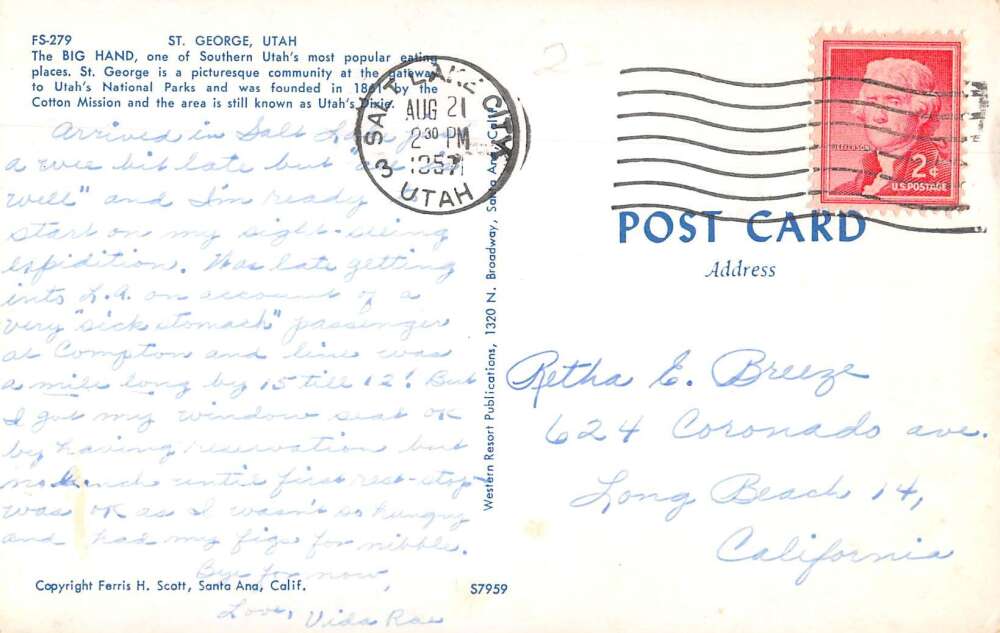 FS-279 ST. GEORGE, UTAH
The BIG HAND, one of Southern Utah's most popular eating
places. St. George is a picturesque community at the gateway
to Utah's National Parks and was founded in 1861 by the
Cotton Mission and the area is still known as Utah's Dixie.
Arrived in Salt Lake
a wee bit late but
well" and I'm ready
start on my sight-seeing
expidition. Was late getting
into L.A. on account of a
very "sick stomach" passenger
at Compton and line was
a mile long by 15 till 12! But
I got my window seat OK
by having reservation but
no lunch until first rest-stop
was OK as I wasn't so hungry
and had my figs for nibble.
Bye for now,
Love, Vida Rae
Copyright Ferris H. Scott, Santa Ana, Calif.
S7959
Western Resort Publications, 1320 N. Broadway, Santa Ana, Calif.
SALT LAKE CITY
AUG 21
2 30 PM
1957
3 UTAH
JEFFERSON
2¢
U.S. POSTAGE
POST CARD
Address
Retha E. Breeze
624 Coronado ave.
Long Beach 14,
California